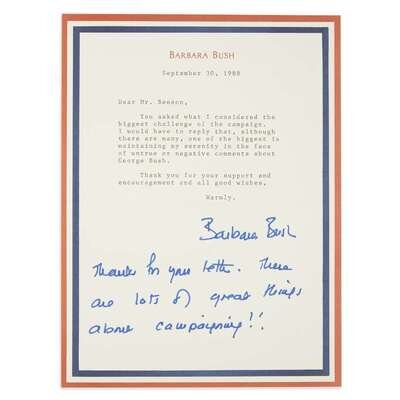 BARBARA BUSH
September 30, 1988
Dear Mr. Benson,
You asked what I considered the
biggest challenge of the campaign.
I would have to reply that, although
there are many, one of the biggest is
maintaining my serenity in the face
of untrue or negative comments about
George Bush.
Thank you for your support and
encouragement and all good wishes,
Warmly,
Barbara Bush
Thanks for your letter. There
are lots of great things
about campaigning!!